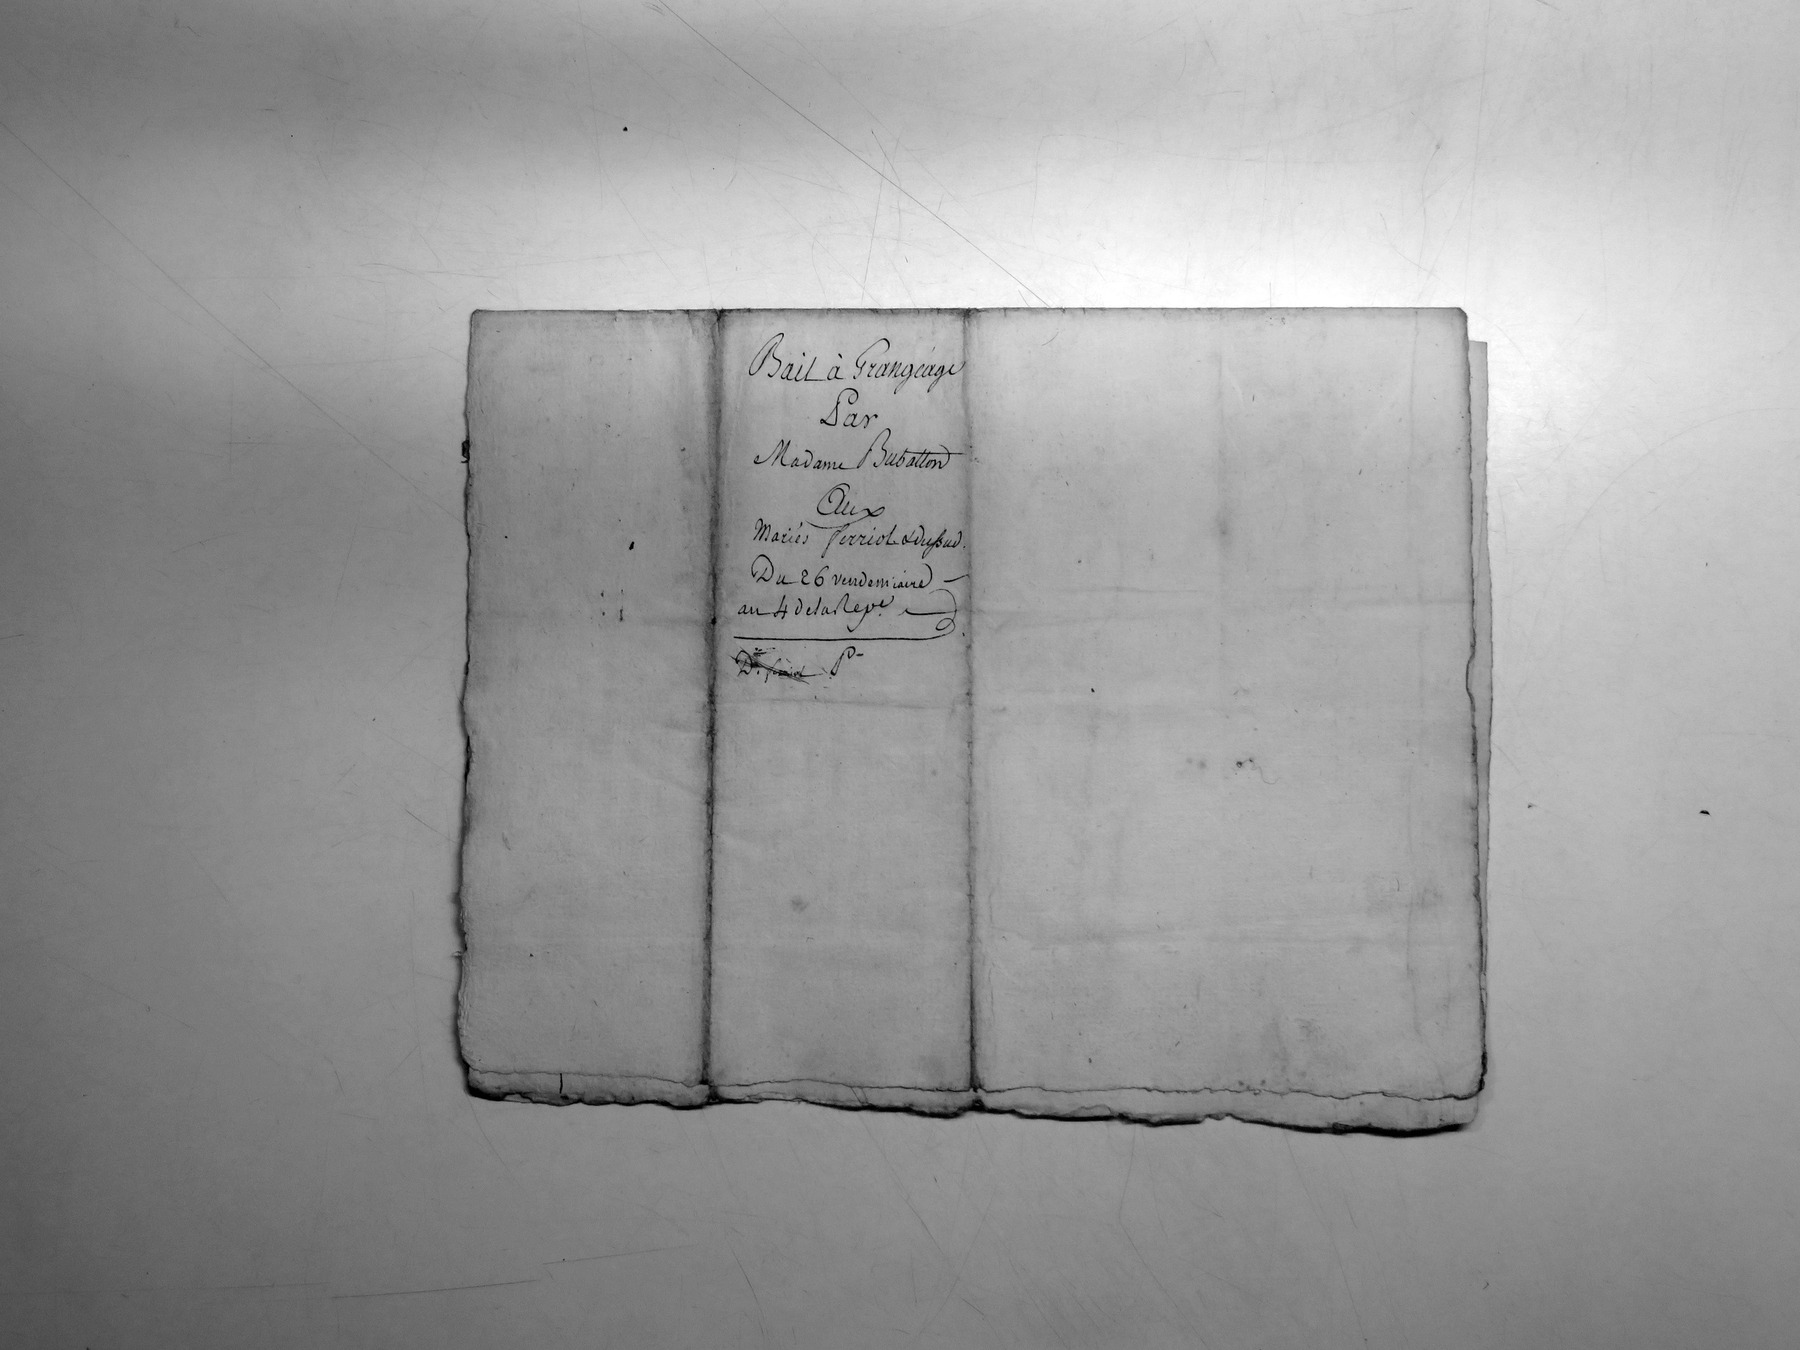 Bail à Grangéage
Par
Madame Bubatton
Aux
Mariés ferriol & dussud.
Du 26 vendemiaire
an 4 de la Repe.